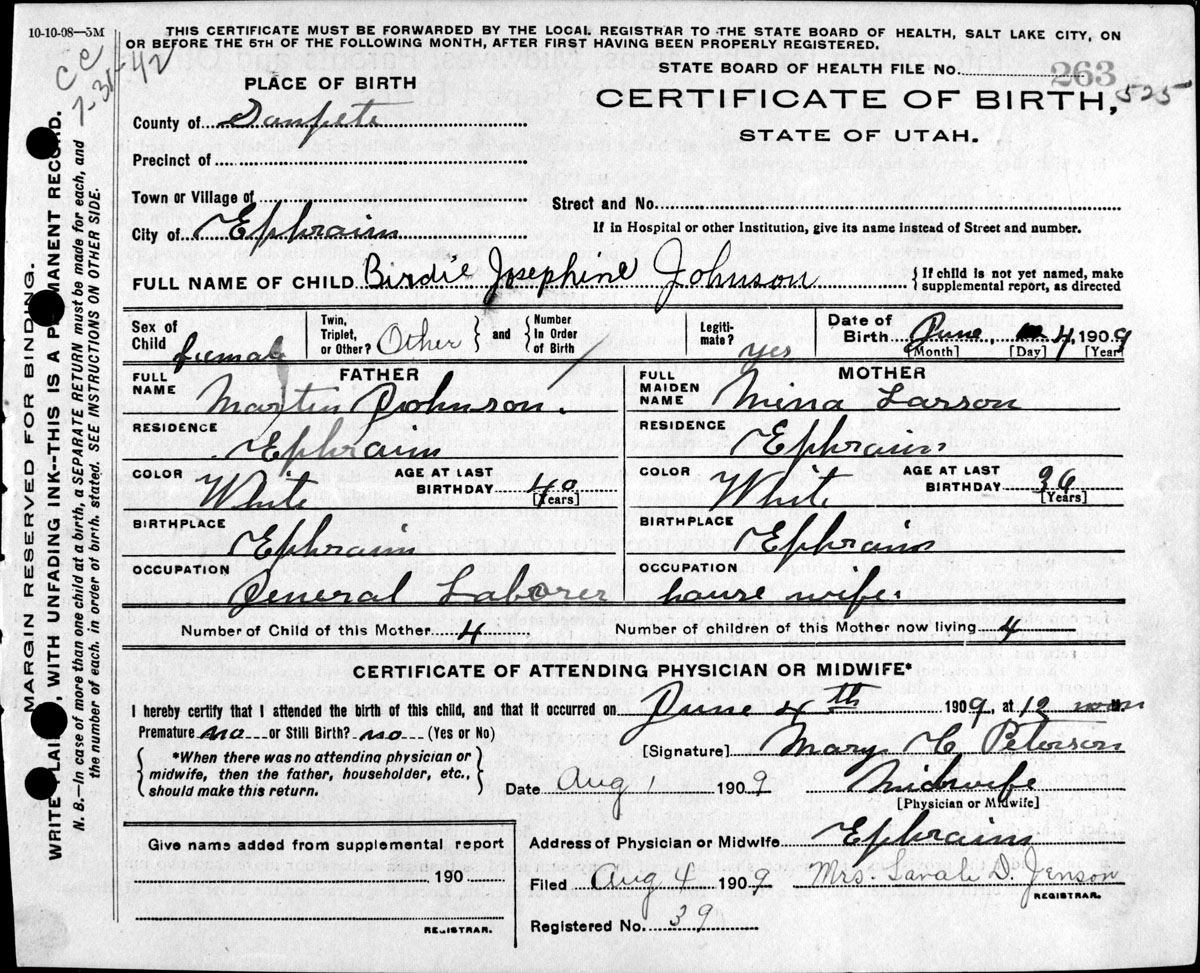 10-10-08—5M
THIS CERTIFICATE MUST BE FORWARDED BY THE LOCAL REGISTRAR TO THE STATE BOARD OF HEALTH, SALT LAKE CITY, ON
OR BEFORE THE 5TH OF THE FOLLOWING MONTH, AFTER FIRST HAVING BEEN PROPERLY REGISTERED.
CC
7-31-42
MARGIN RESERVED FOR BINDING.
WRITE PLAI , WITH UNFADING INK--THIS IS A P MANENT RECORD.
N. B.—In case of more than one child at a birth, a SEPARATE RETURN must be made for each, and
the number of each, in order of birth, stated. SEE INSTRUCTIONS ON OTHER SIDE.
PLACE OF BIRTH
STATE BOARD OF HEALTH FILE No. 263
525
CERTIFICATE OF BIRTH,
STATE OF UTAH.
County of Sanpete
Precinct of
Town or Village of
Street and No.
City of Ephraim
If in Hospital or other Institution, give its name instead of Street and number.
FULL NAME OF CHILD Birdie Josephine Johnson
{ If child is not yet named, make
supplemental report, as directed
Sex of Child female
Twin, Triplet, or Other? Other } and { Number In Order of Birth /
Legiti-mate? yes
Date of Birth June, 4, 1909
[Month] [Day] [Year]
FATHER
FULL NAME Martin Johnson.
RESIDENCE Ephraim
COLOR White AGE AT LAST BIRTHDAY 40 [Years]
BIRTHPLACE Ephraim
OCCUPATION General Laborer
MOTHER
FULL MAIDEN NAME Mina Larson
RESIDENCE Ephraim
COLOR White AGE AT LAST BIRTHDAY 36 [Years]
BIRTHPLACE Ephraim
OCCUPATION house wife.
Number of Child of this Mother 4 Number of children of this Mother now living 4
CERTIFICATE OF ATTENDING PHYSICIAN OR MIDWIFE*
I hereby certify that I attended the birth of this child, and that it occurred on June 4th 1909, at 12 noon
Premature no or Still Birth? no (Yes or No)
[Signature] Mary C Peterson
{ *When there was no attending physician or
midwife, then the father, householder, etc.,
should make this return. }
Date Aug 1 1909 Midwife
[Physician or Midwife]
Give name added from supplemental report
190
REGISTRAR.
Address of Physician or Midwife Ephraim
Filed Aug 4 1909 Mrs. Sarah D. Jenson
REGISTRAR.
Registered No. 39